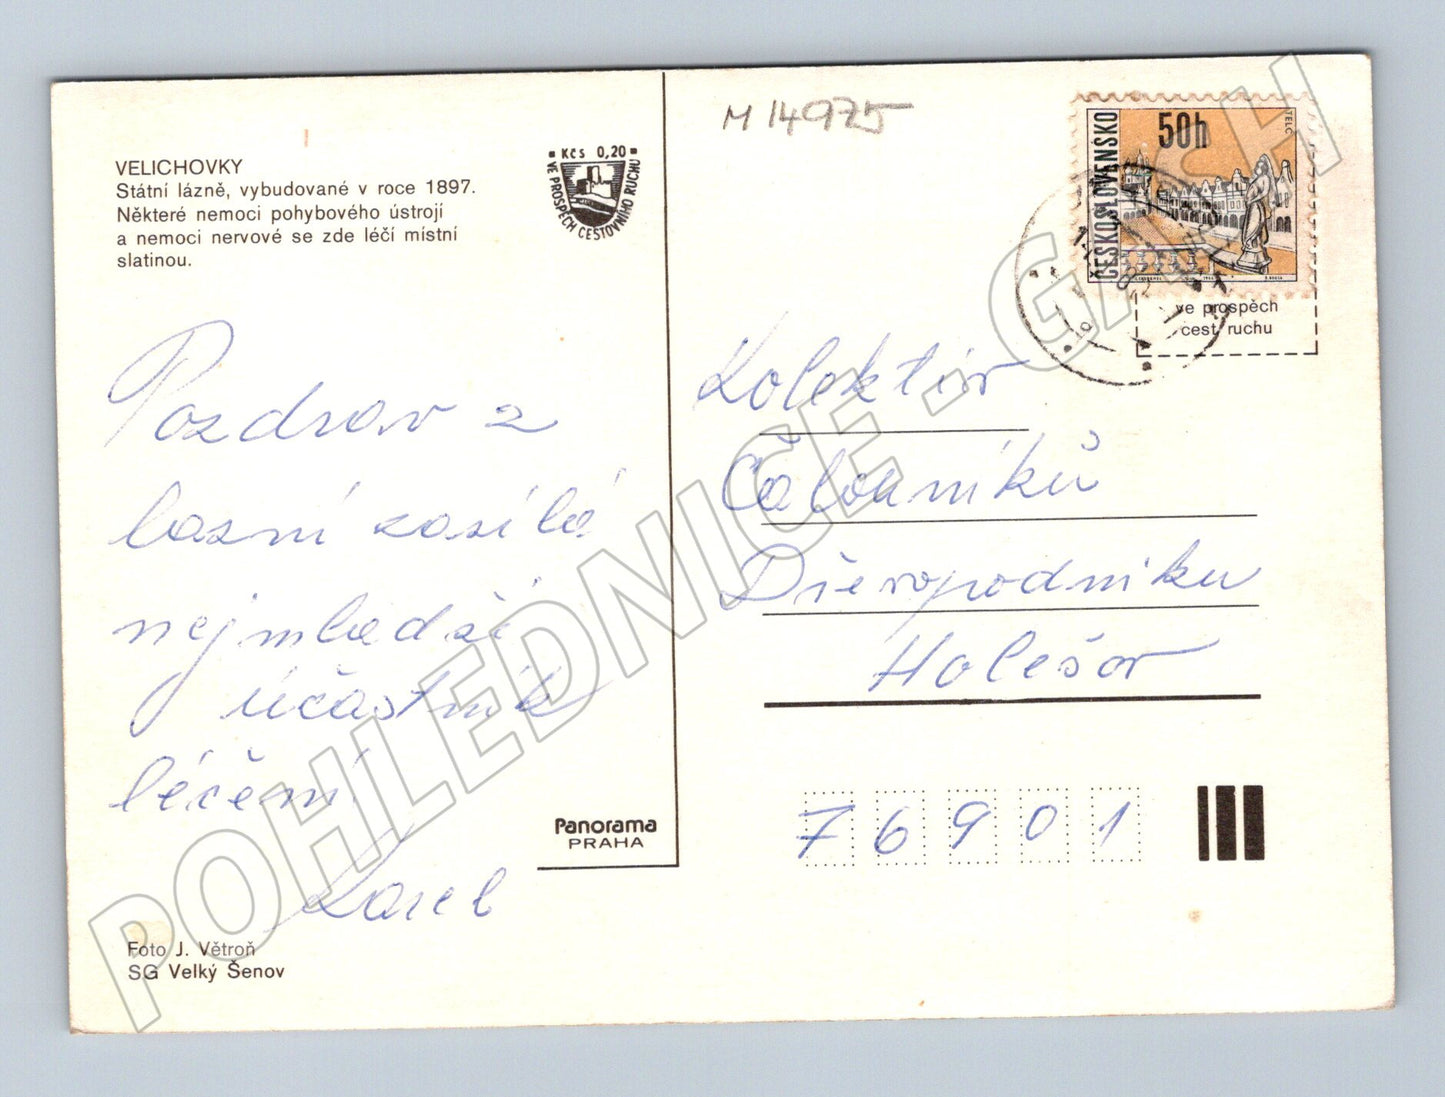 VELICHOVKY
Státní lázně, vybudované v roce 1897.
Některé nemoci pohybového ústrojí
a nemoci nervové se zde léčí místní
slatinou.
Kčs 0,20
VE PROSPĚCH CESTOVNÍHO RUCHU
M 14975
ČESKOSLOVENSKO
50h
TELČ
ve prospěch
cest. ruchu
Pozdrav z
lazní zasílá
nejmladší
účastník
léčení
Karel
Kolektiv
Čalouníků
Dřevopodniku
Holešov
76901
Panorama
PRAHA
Foto J. Větroň
SG Velký Šenov
POHLEDNICE - GACH